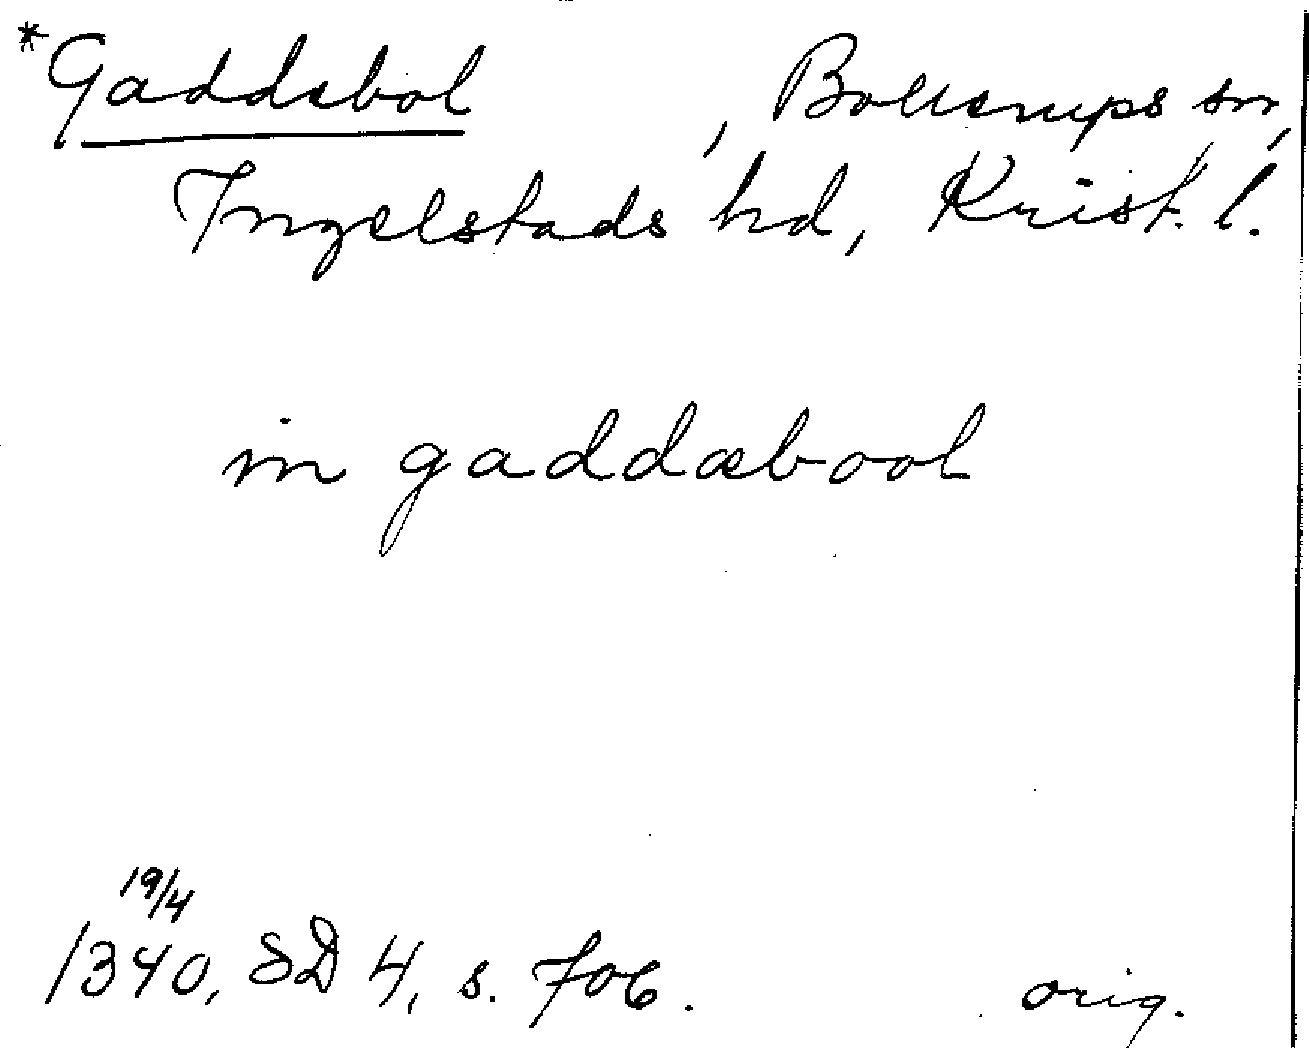 *Gaddabol, Bollerups sn,
Ingelstads hd, Krist. l.
in gaddæbool
19/4
1340, SD 4, s. 706.
orig.